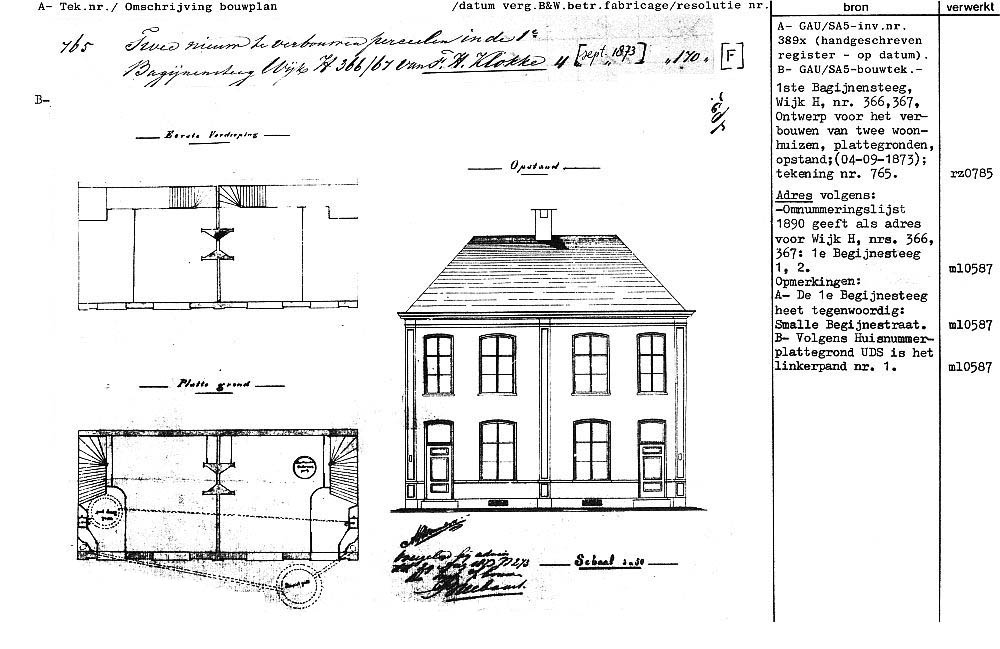 A- Tek.nr./ Omschrijving bouwplan
/datum verg.B&W.betr.fabricage/resolutie nr.
bron
verwerkt
765 Twee nieuw te verbouwen perceelen in de 1e
Bagijnensteeg Wijk H 366/67 van F. H. Klokke 4 [sept. 1873] „170„ [F]
B-
Eerste Verdieping
Opstand
Platte grond
Schaal
A- GAU/SA5-inv.nr.
389x (handgeschreven
register - op datum).
B- GAU/SA5-bouwtek.-
1ste Bagijnensteeg,
Wijk H, nr. 366,367,
Ontwerp voor het ver-
bouwen van twee woon-
huizen, plattegronden,
opstand;(04-09-1873);
tekening nr. 765.
rz0785
Adres volgens:
-Omnummeringslijst
1890 geeft als adres
voor Wijk H, nrs. 366,
367: 1e Begijnesteeg
1, 2.
ml0587
Opmerkingen:
A- De 1e Begijnesteeg
heet tegenwoordig:
Smalle Begijnestraat.
ml0587
B- Volgens Huisnummer-
plattegrond UDS is het
linkerpand nr. 1.
ml0587